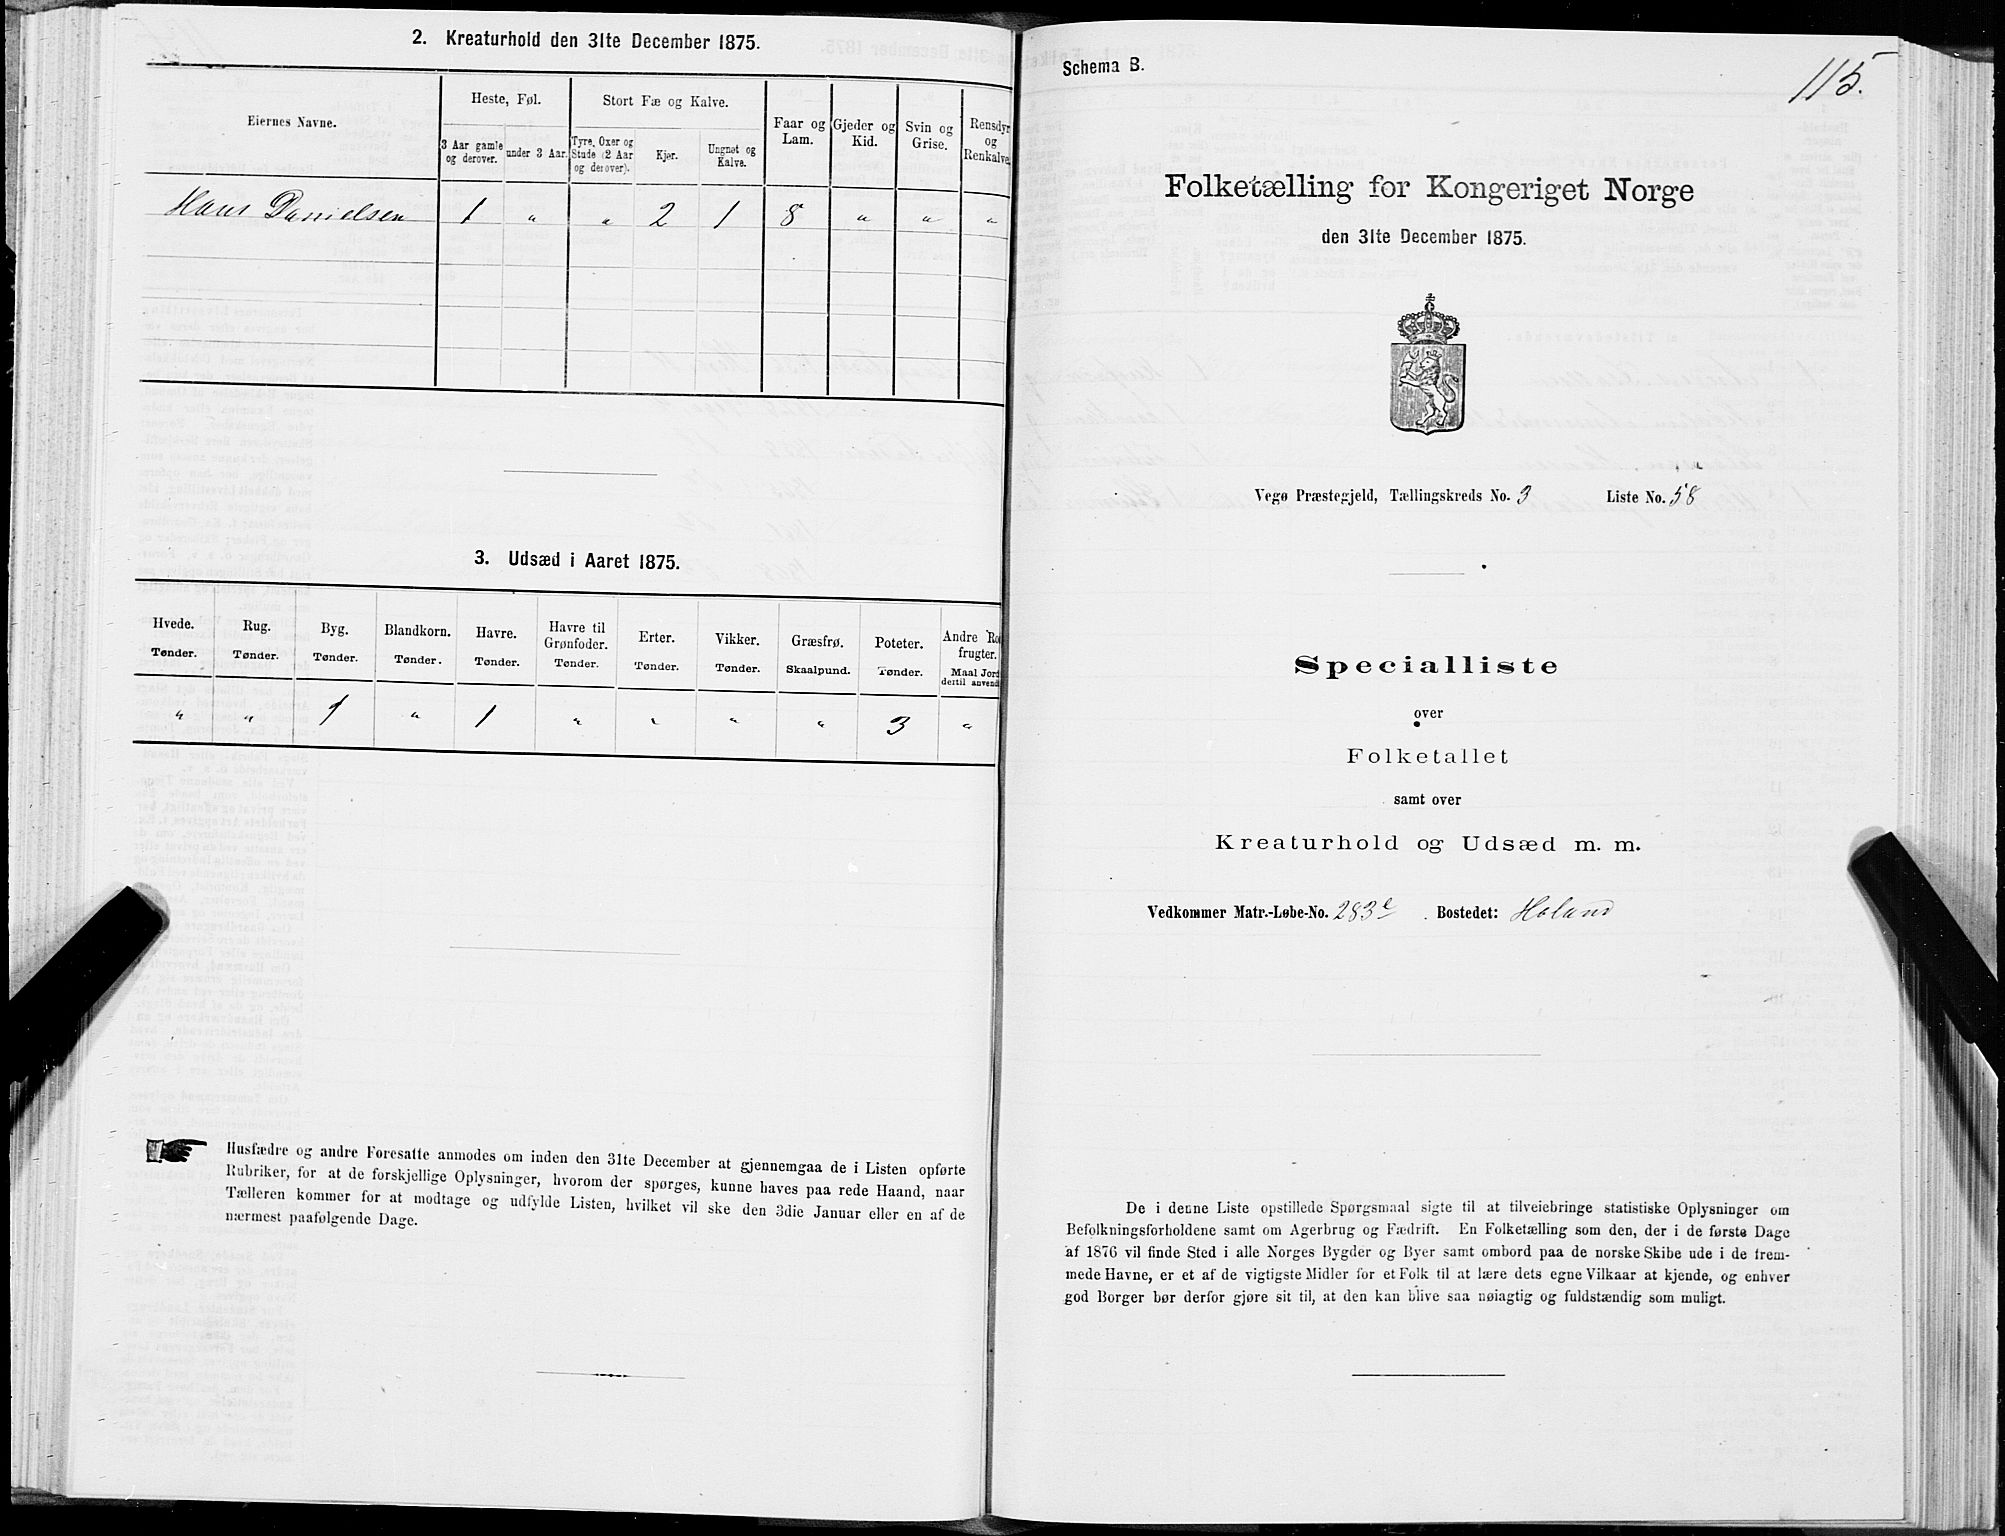 2. Kreaturhold den 31te December 1875.
Eiernes Navne.
Heste, Føl.
Stort Fæ og Kalve.
Faar og
Lam.
Gjeder og
Kid.
Svin og
Grise.
Rensdyr
og
Renkalve.
3 Aar gamle
og derover.
under 3 Aar.
Tyre, Oxer og
Stude (2 Aar
og derover).
Kjør.
Ungnøt og
Kalve.
Hans Danielsen 1 " " 2 1 8 " " "
3. Udsæd i Aaret 1875.
Hvede.
Tønder.
Rug.
Tønder.
Byg.
Tønder.
Blandkorn.
Tønder.
Havre.
Tønder.
Havre til
Grønfoder.
Tønder.
Erter.
Tønder.
Vikker.
Tønder.
Græsfrø.
Skaalpund.
Poteter.
Tønder.
Andre Ro
frugter.
Maal Jord
dertil anvend
" " 1 " 1 " " " " 3 "
Husfædre og andre Foresatte anmodes om inden den 31te December at gjennemgaa de i Listen opførte
Rubriker, for at de forskjellige Oplysninger, hvorom der spørges, kunne haves paa rede Haand, naar
Tælleren kommer for at modtage og udfylde Listen, hvilket vil ske den 3die Januar eller en af de
nærmest paafølgende Dage.
Schema B.
115.
Folketælling for Kongeriget Norge
den 31te December 1875.
Vegø Præstegjeld, Tællingskreds No. 3 Liste No. 58
Specialliste
over
Folketallet
samt over
Kreaturhold og Udsæd m. m.
Vedkommer Matr.-Løbe-No. 283e. Bostedet: Holand
De i denne Liste opstillede Spørgsmaal sigte til at tilveiebringe statistiske Oplysninger om
Befolkningsforholdene samt om Agerbrug og Fædrift. En Folketælling som den, der i de første Dage
af 1876 vil finde Sted i alle Norges Bygder og Byer samt ombord paa de norske Skibe ude i de frem-
mede Havne, er et af de vigtigste Midler for et Folk til at lære dets egne Vilkaar at kjende, og enhver
god Borger bør derfor gjøre sit til, at den kan blive saa nøiagtig og fuldstændig som muligt.